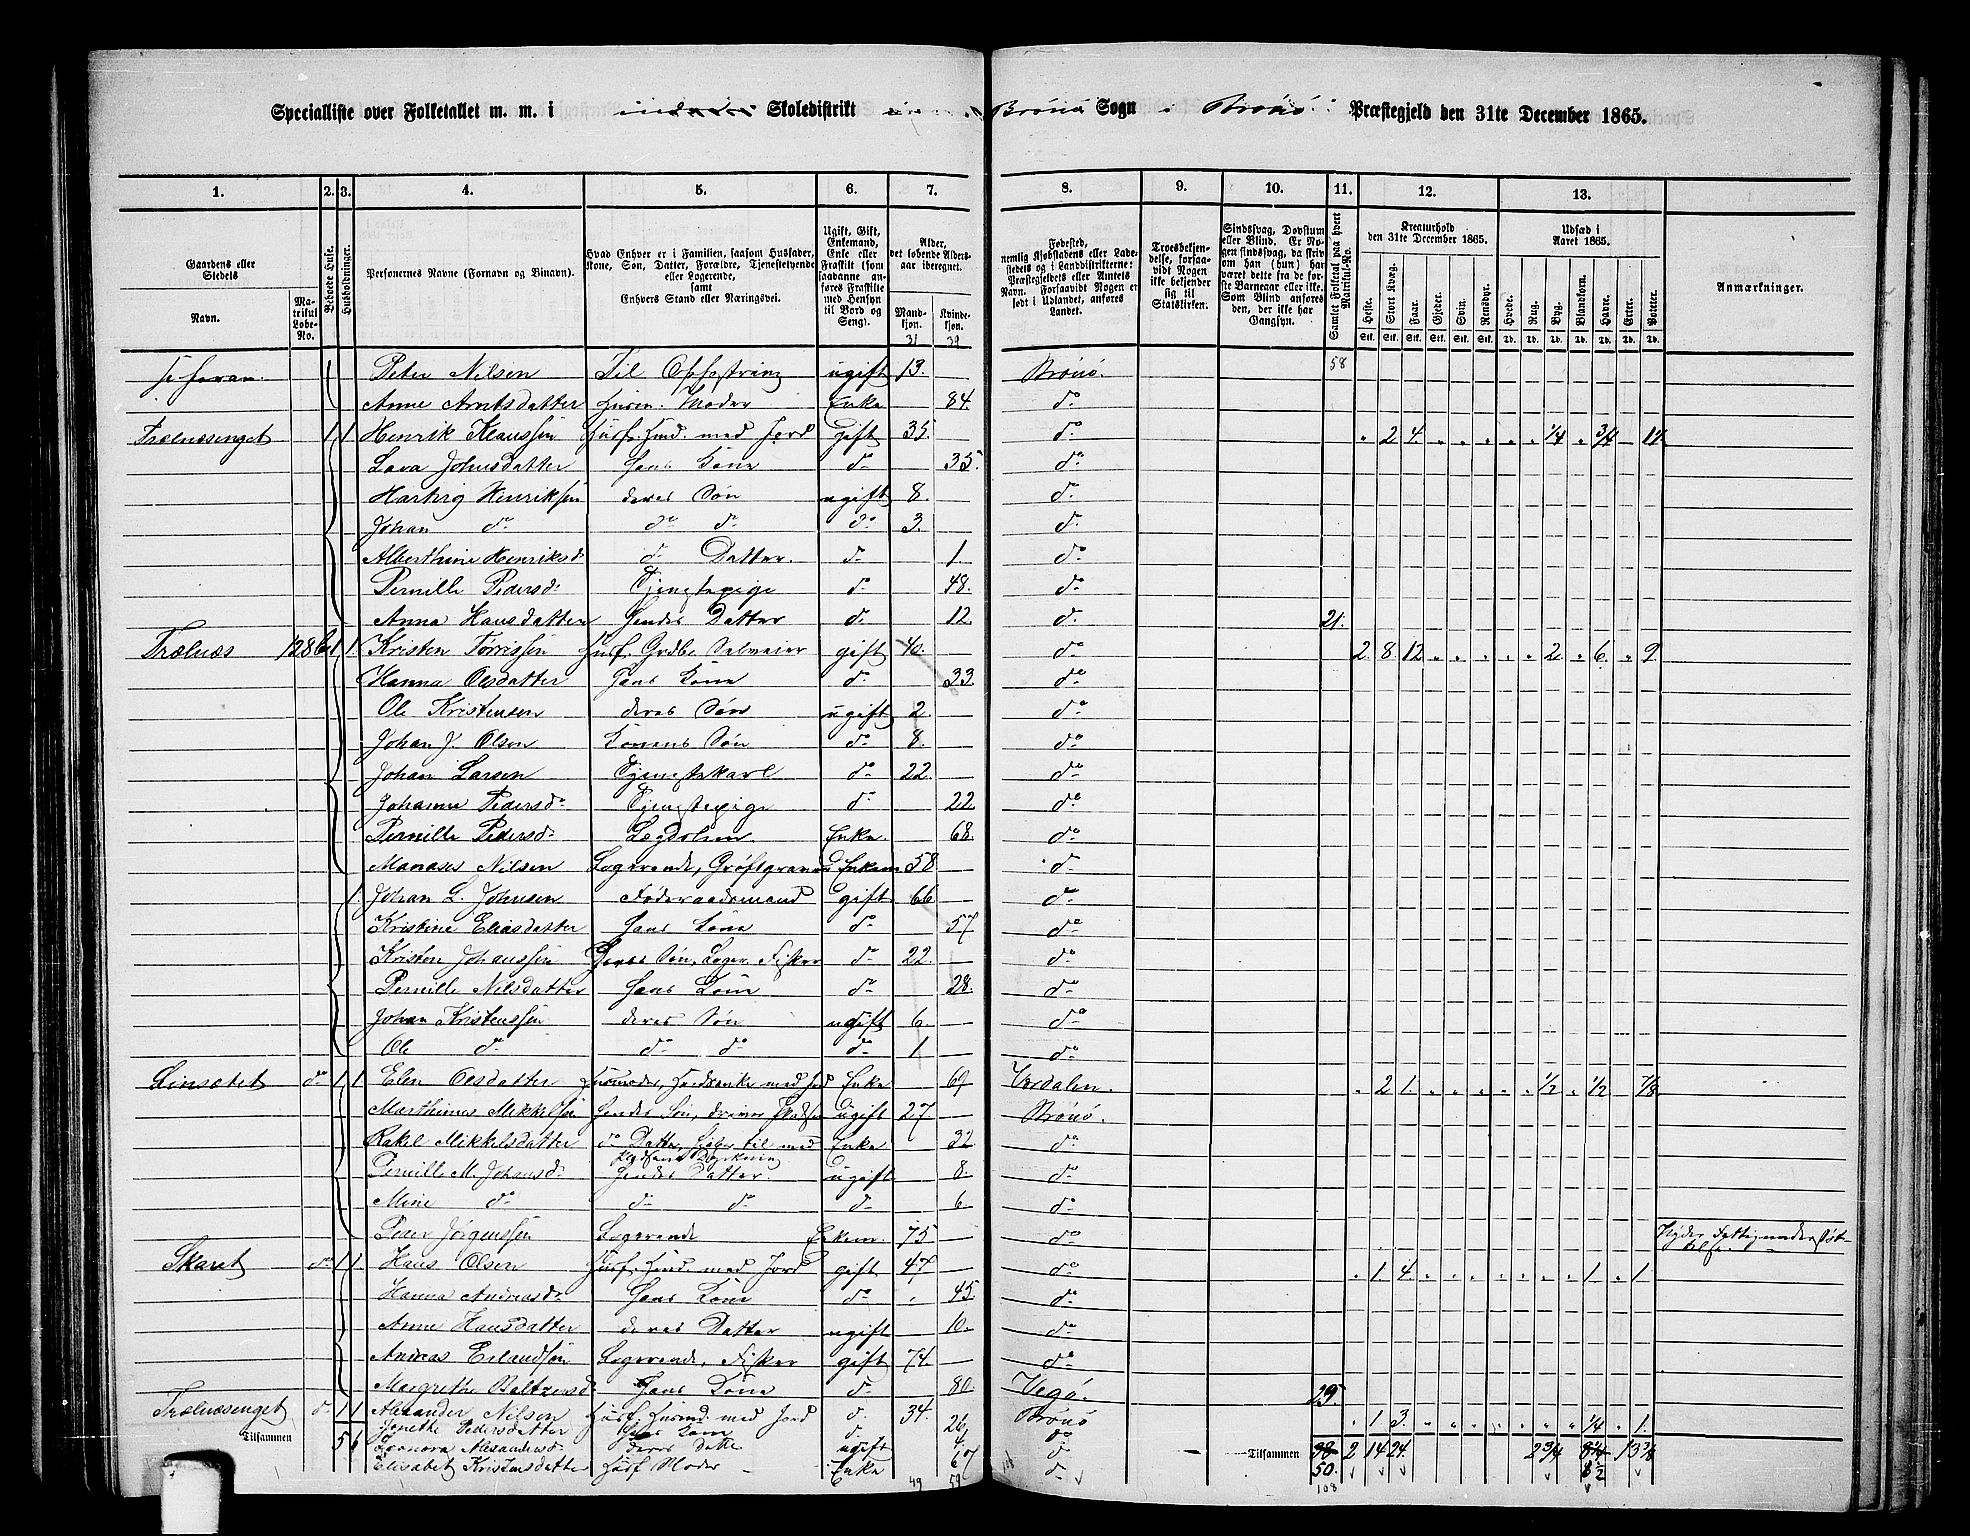 Specialliste over Folketallet m. m. i Skoledistrikt Brönö Sogn i Brönö Præstegjeld den 31te December 1865.
1. 2. 3. 4. 5. 6. 7. 8. 9. 10. 11. 12. 13.
Gaardens eller Stedets Navn. Matrikul Løbe-No. Beboede Huse. Husholdninger. Personernes Navne (Fornavn og Binavn). Hvad Enhver er i Familien, saasom Husfader, Kone, Søn, Datter, Forældre, Tjenestetyende eller Logerende, samt Enhvers Stand eller Næringsvei. Ugift, Gift, Enkemand, Enke eller Fraskilt (som saadanne anføres Fraskilte med Hensyn til Bord og Seng). Alder, det løbende Alders-aar iberegnet. Mandkjøn. Kvindekjøn. Fødested, nemlig Kjøbstadens eller Ladestedets og i Landdistrikterne: Præstegjeldets eller Amtets Navn. Forsaavidt Nogen er født i Udlandet, anføres Landet. Troesbekjendelse, forsaavidt Nogen ikke bekjender sig til Statskirken. Sindssvag, Døvstum eller Blind. Er Nogen sindssvag, da skrives om han (hun) har været dette fra de første Barneaar eller ikke. Som Blind anføres den, der ikke har Gangsyn. Samlet Folketal paa hvert Matrikul-No. Kreaturhold den 31te December 1865. Udsæd i Aaret 1865. Anmærkninger.
Heste. Stort Kvæg. Faar. Gjeder. Svin. Rensdyr. Hvede. Rug. Byg. Blandkorn. Havre. Erter. Poteter.
31 39
Peter Nilsen Til Opfostring ugift 13. Brönö. 58
Anne Arntsdatter Husm. Moder Enke 84. do
Trælnæsenget 1 1 Henrik Klaussen Husf. Husm. med Jord gift 35. do 2 4 1/4 3/4 1 1/2
Lava Johnsdatter Hans Kone do 35. do
Hartvig Henriksen deres Søn ugift 8. do
Johan do do do do 3. do
Alberthine Henriksd do Datter. do 1. do
Pernille Pedersd Tjenestepige do 48. do
Anna Hansdatter Hendes Datter do 12. do 21.
Trælnæs 128 6 1 1. Kristen Tørrissen Husf. Grdbr. Selveier gift 40. do 2. 8. 12 2. 6. 9.
Hanna Olsdatter Hans Kone do 33. do
Ole Kristensen deres Søn ugift 2. do
Johan J. Olsen Konens Søn do 8. do
Johan Larsen Tjenestekarl do 22. do
Johanna Pedersd Tjenestepige do 22 do
Pernille Pedersd Lægdslem Enke. 68. do
Manases Nilsen Logerende, Grøftgraver Enkem 58 do
1. Johan L. Johnsen Føderaadsmand gift 66 do
Kristine Eliasdatter Hans Kone do 57. do
Kristen Johanssen Deres Søn, Loger. Fisker do 22. do
Pernille Nilsdatter Hans Kone do 28. do
Johan Kristenssen deres Søn ugift 6. do
Ole do do do do 1 do
Linsætet do 1 1 Elen Olsdatter Husmoder, Husm.enke med Jord Enke 69 Værdalen. 2 1. 1/2 1/2 7/8
Marthinus Mikkelsen Hendes Søn, driver ugift 27 Brönö.
Rakel Mikkelsdatter do Datter, hjelper til med Enke 32 do
Pernille M. Johansd Hendes Datter. ugift 8. do
Mine do do do do 6. do
Peter Jørgenssen Logerende Enkem. 75 do Nyder Fattigunderstøttelse.
Skaret do 1 1. Hans Olsen Husf. Husm. med Jord gift 47 do 1. 4. 1 1
Hanna Andreasd Hans Kone do 45. do
Anne Hansdatter deres Datter ugift 10. do
Andreas Erlandsen Logerende, Fisker gift 74. do
Margrethe Baltzersd Hans Kone do 80. Vegö. 29.
Trælnæsenget do 1 1 Alexander Nilsen Husf. Husmd. med Jord do 34. Brönö 1 3. 1/4 1.
Jenethe Pedersdatter Hans Kone do 26 do
Tilsammen 5 6 Leonora Alexandersd deres Datter ugift 4 do Tilsammen 38 2 14 24. 2 3/4 8 1/4 13 3/8
Elisabet Kristensdatter Husf. Moder Enke 67 do 50. 8 1/2
49 59 108